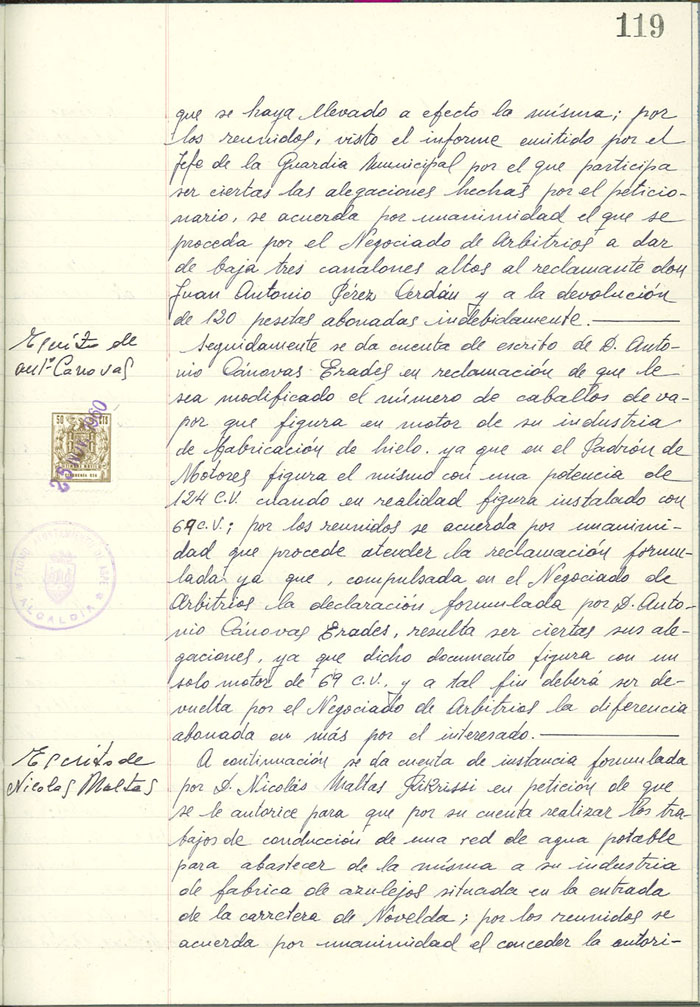 119
que se haya llevado a efecto la misma; por
los reunidos, visto el informe emitido por el
Jefe de la Guardia Municipal por el que participa
ser ciertas las alegaciones hechas por el peticio-
nario, se acuerda por unanimidad el que se
proceda por el Negociado de Arbitrios a dar
de baja tres canalones altos al reclamante don
Juan Antonio Pérez Cerdán y a la devolución
de 120 pesetas abonadas indebidamente.
Escrito de
Antº Canovas
Seguidamente se da cuenta de escrito de D. Anto-
nio Cánovas Erades en reclamación de que le
sea modificado el número de caballos de va-
por que figura en motor de su industria
de fabricación de hielo. ya que en el Padrón de
Motores figura el mismo con una potencia de
124 C.V. cuando en realidad figura instalado con
69 C.V.; por los reunidos se acuerda por unanimi-
dad que procede atender la reclamación formu-
lada ya que, compulsada en el Negociado de
Arbitrios la declaración formulada por D. Anto-
nio Cánovas Erades, resulta ser ciertas sus ale-
gaciones, ya que dicho documento figura con un
solo motor de 69 C.V., y a tal fin deberá ser de-
vuelta por el Negociado de Arbitrios la diferencia
abonada en más por el interesado.
50 CTS
25 NOV. 1960
ALCALDIA
Escrito de
Nicolas Maltas
A continuación se da cuenta de instancia formulada
por D. Nicolás Maltas en petición de que
se le autorice para que por su cuenta realizar los tra-
bajos de conducción de una red de agua potable
para abastecer de la misma a su industria
de fabrica de azulejos situada en la entrada
de la carretera de Novelda; por los reunidos se
acuerda por unanimidad el conceder la autori-